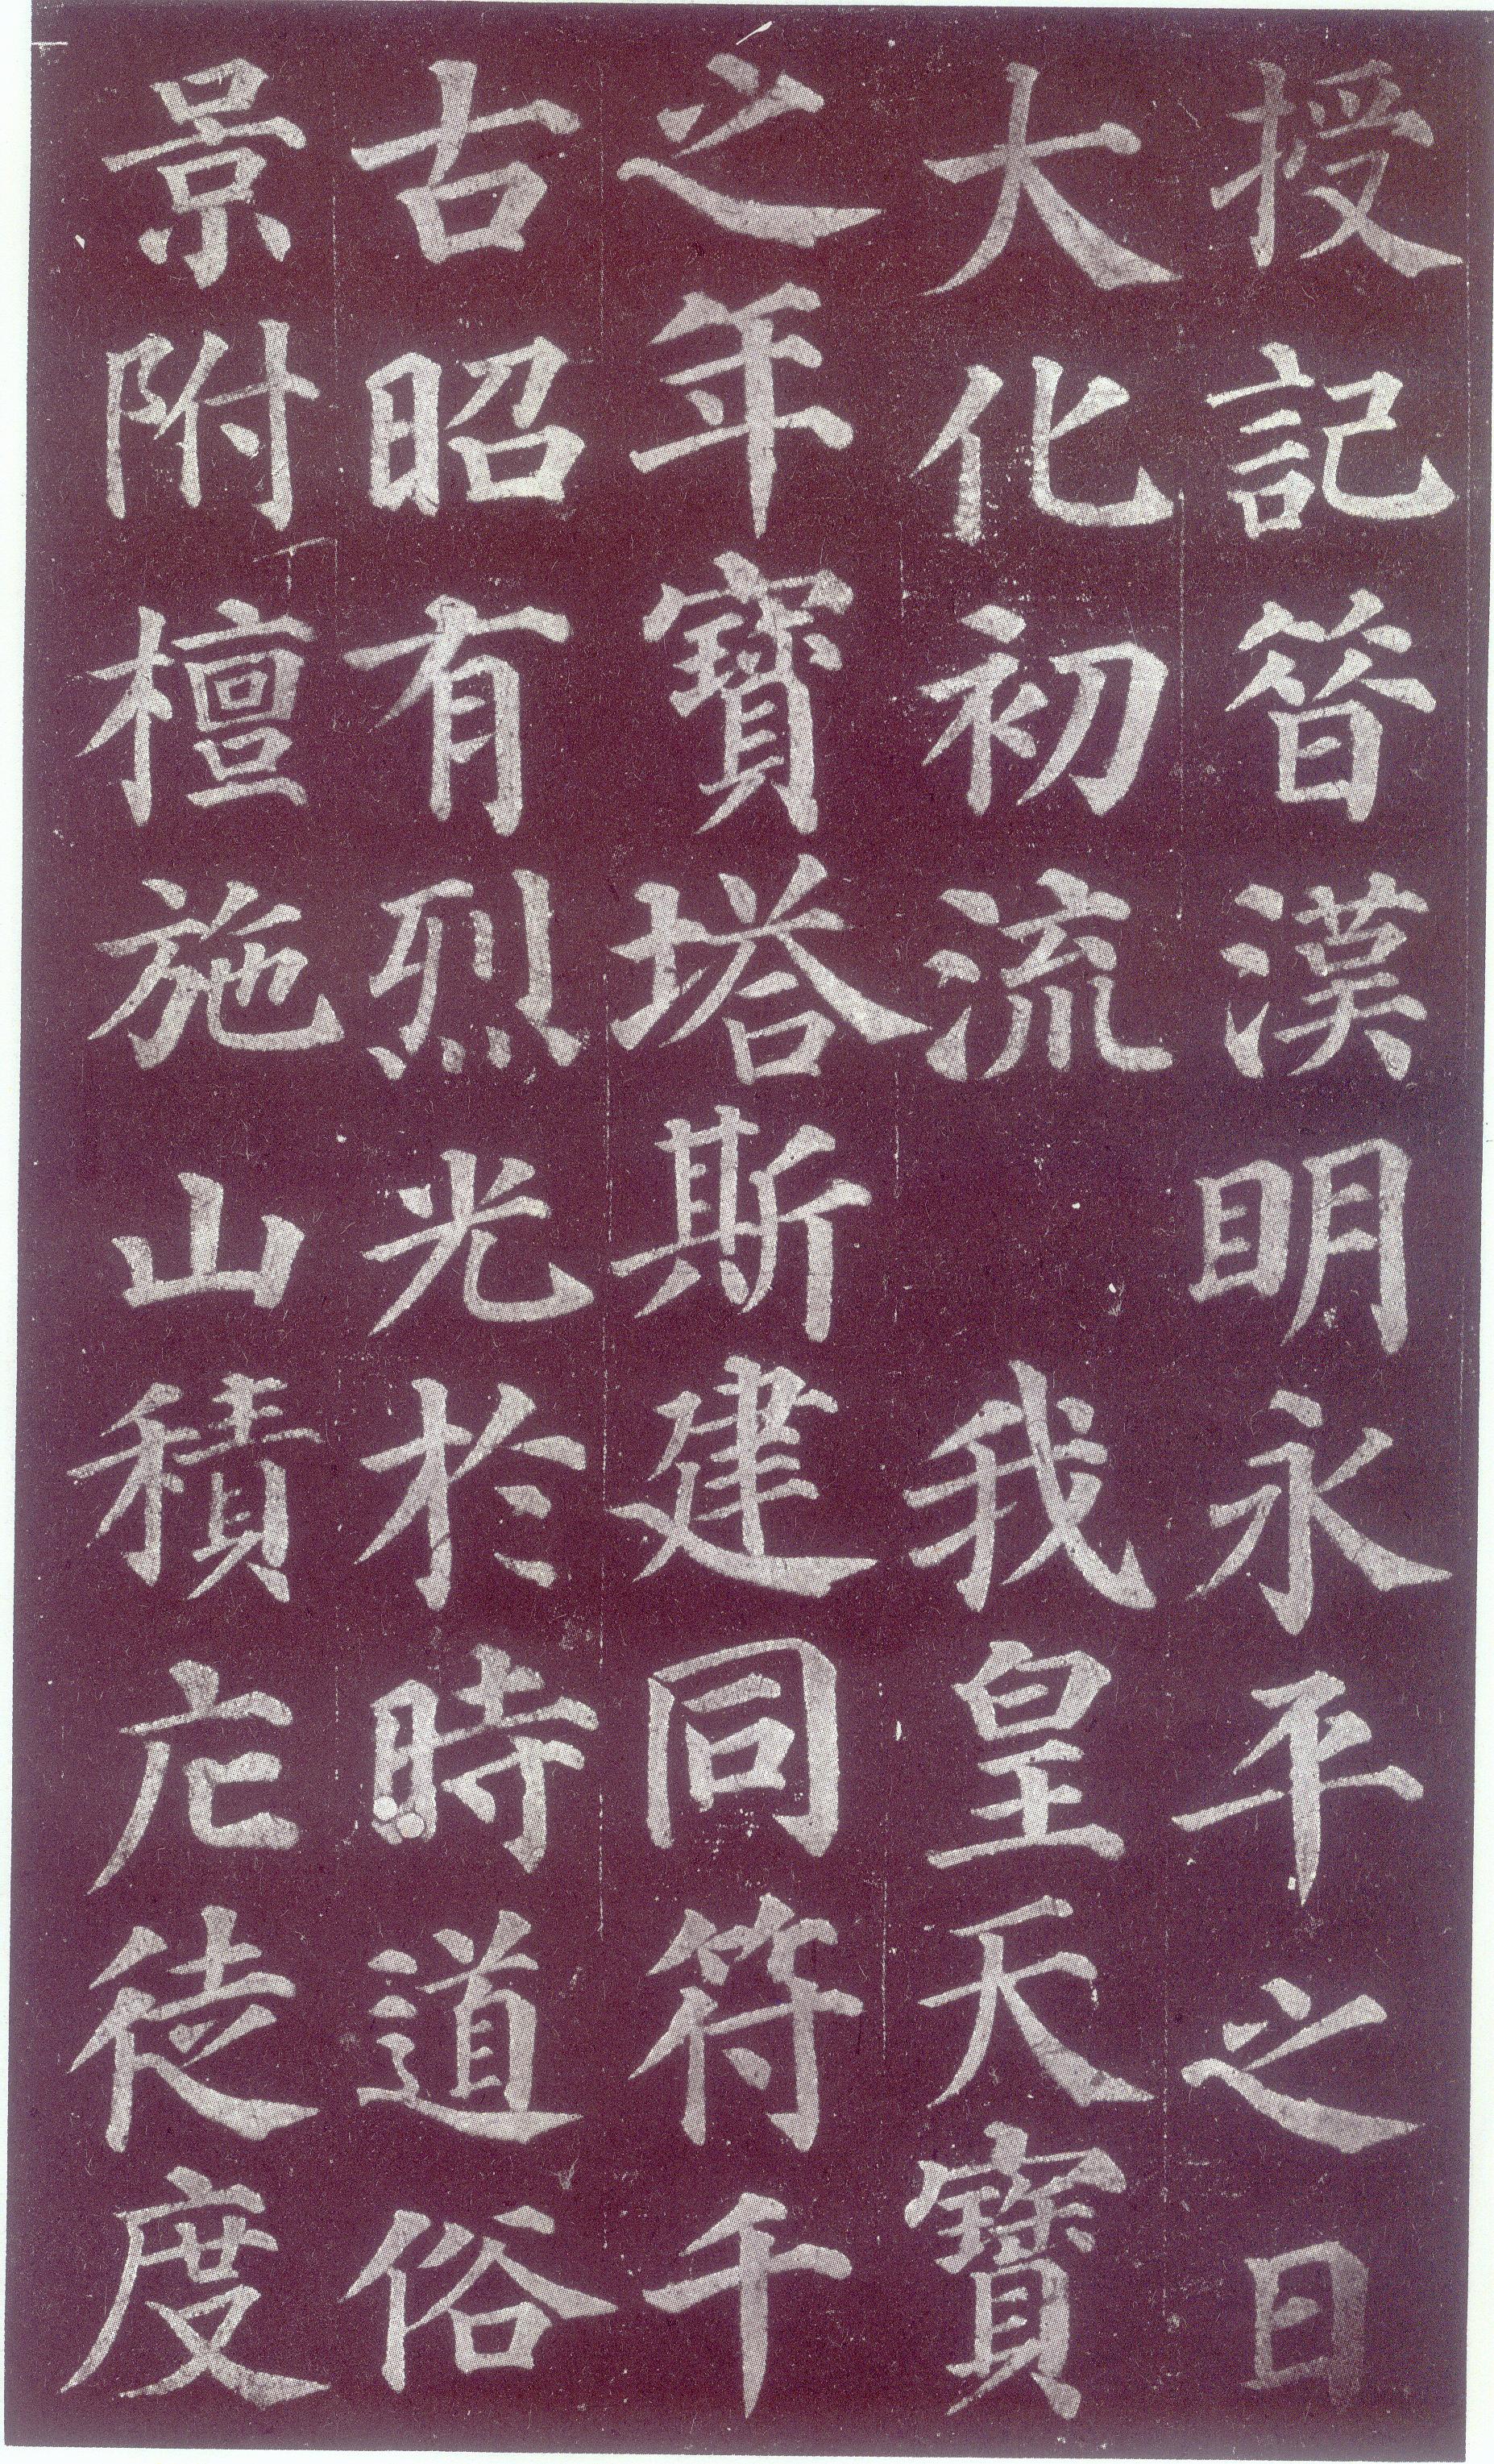 授記昔漢明永平之日
大化初流 我皇天寶
之年寶塔斯建同符千
古昭有烈光於時道俗
景附檀施山積庀徒度